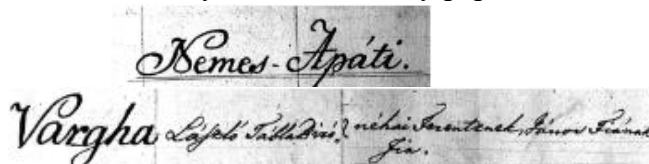 Nemes-Apáti.
Vargha László Táblabiró, néhai Ferentznek, János Fiának
fia.